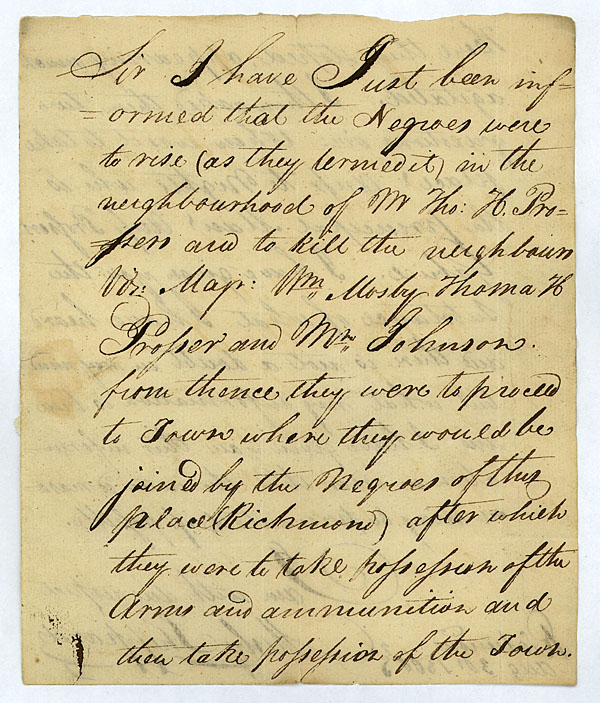 Sir I have Just been inf=
=ormed that the Negroes were
to rise (as they termed it) in the
neighbourhood of Mr Tho: H. Pro=
=ssers and to kill the neighbours
Viz: Majr: Wm, Mosby Thoma H
Prosser and Mr, Johnson.
from thence they were to proceed
to Town where they would be
joined by the Negroes of this
place (Richmond) after which
they were to take possession of the
Arms and ammunition and
then take possession of the Town.